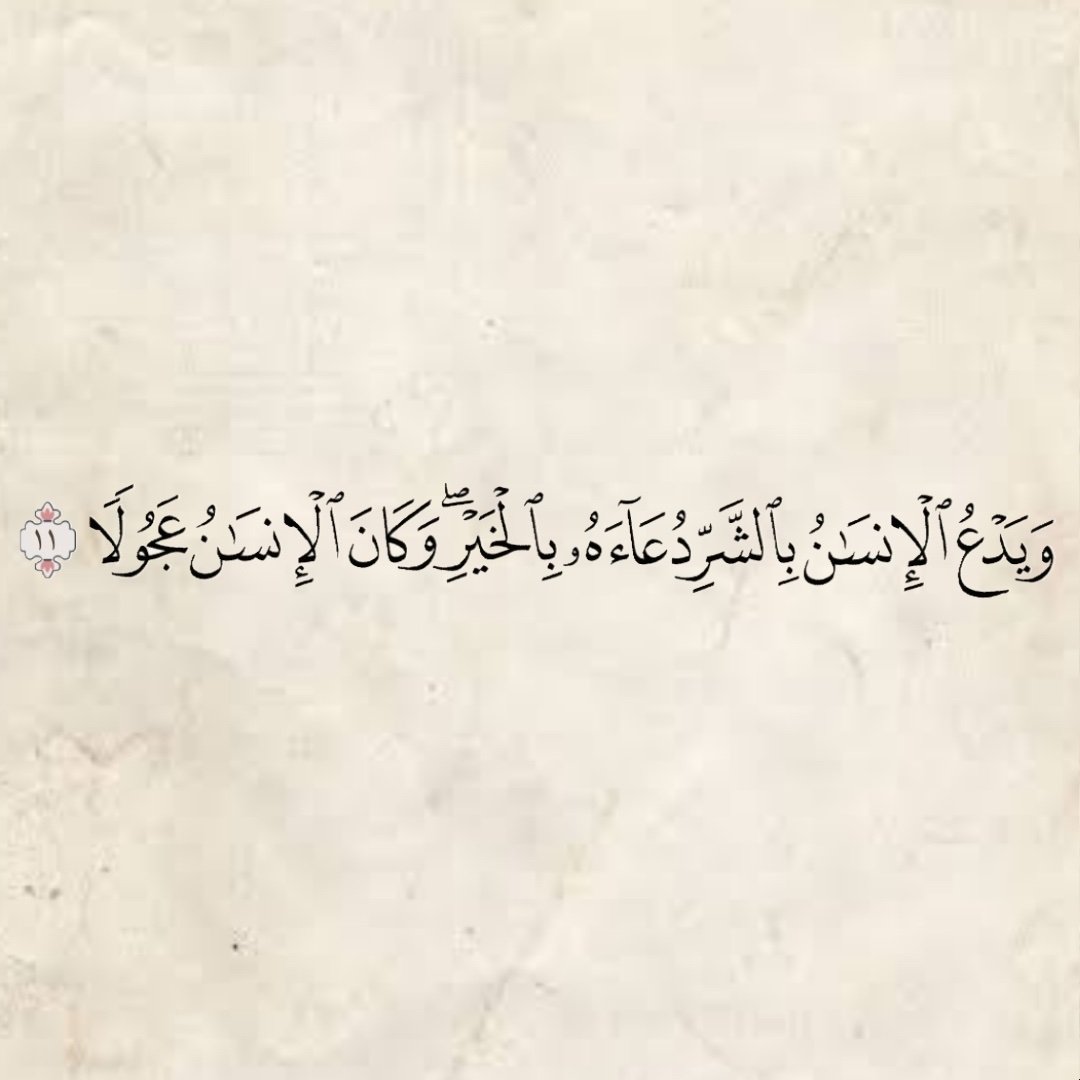 وَيَدْعُ ٱلْإِنسَـٰنُ بِٱلشَّرِّ دُعَآءَهُۥ بِٱلْخَيْرِ ۖ وَكَانَ ٱلْإِنسَـٰنُ عَجُولًا ١١